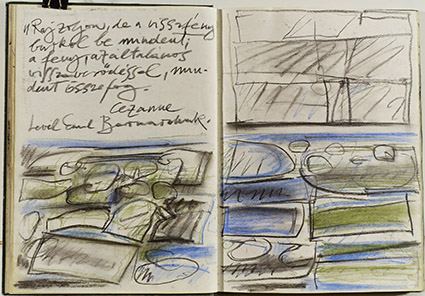 „Rajzoljon, de a visszfény
burkol be mindent,
a fény az általános
visszaverődéssel, min-
dent összefog.
Cezanne
Levél Emil Bernardnak.